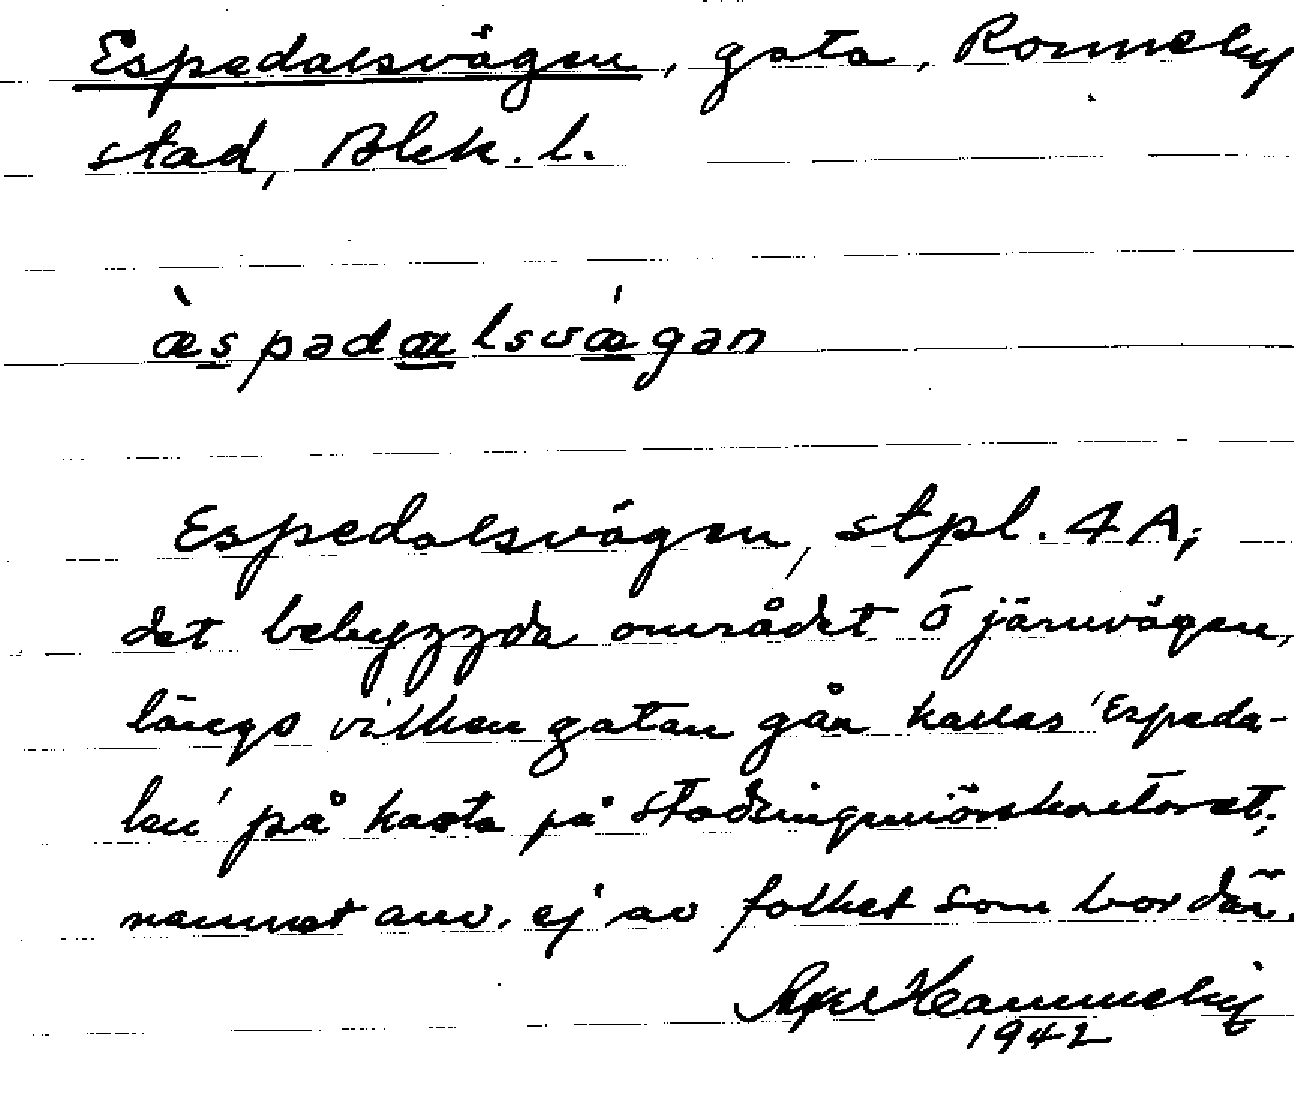 Espedalsvägen, gata, Ronneby
stad, Blek. l.
æ̀spədɑlsvǽgən
Espedalsvägen, stpl. 4A;
det bebyggda området ö järnvägen,
längs vilken gatan går kallas 'Espeda-
len' på karta på stadsingeniörskontoret;
namnet anv. ej av folket som bor där.
Axel Hammarby
1942